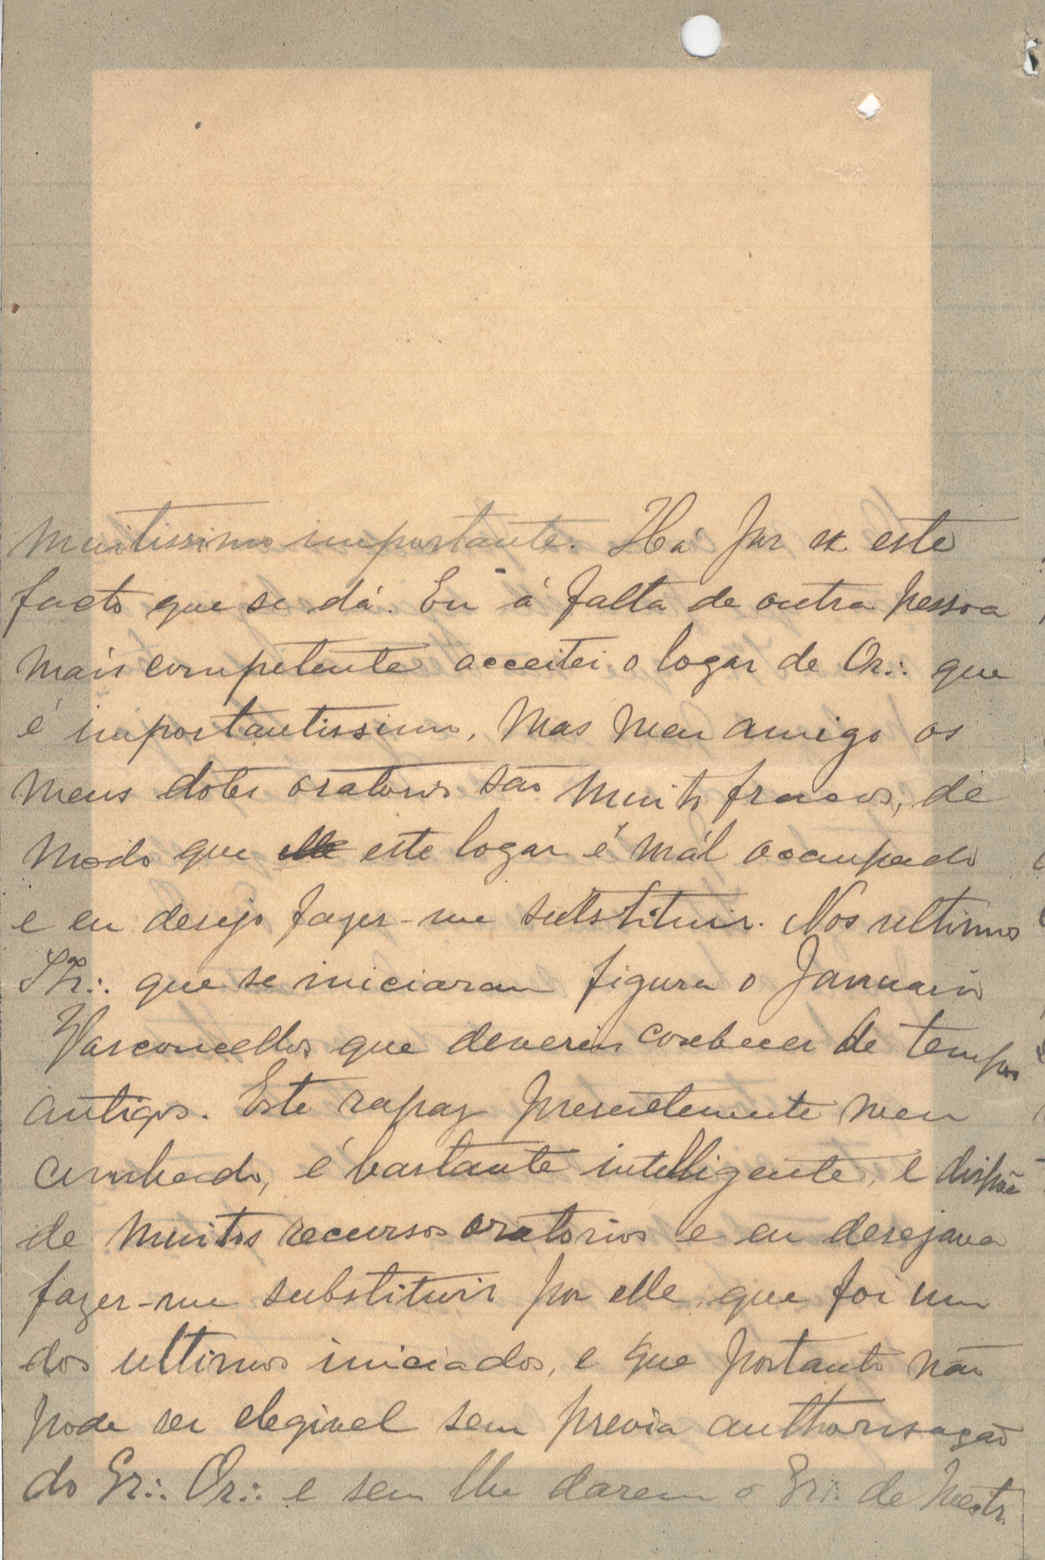 muitissimo importante. Ha por ex este
facto que se dá. Eu á falta de outra pessoa
mais competente acceitei o logar de Or∴ que
é importantissimo. Mas meu amigo os
meus dotes oratorios são muito fracos, de
modo que este logar é mál occupado
e eu desejo fazer-me substituir. Nos ultimos
que se iniciaram figura o Januario
Vasconcellos que deveria conhecer de tempos
antigos. Este rapaz presentemente meu
cunhado, é bastante intelligente, e dispõe
de muitos recursos oratorios e eu desejava
fazer-me substituir por elle, que foi um
dos ultimos iniciados, e que portanto não
pode ser elegivel sem previa authorisação
do Gr∴ Or∴ e sem lhe darem o Gr∴ de Mestr